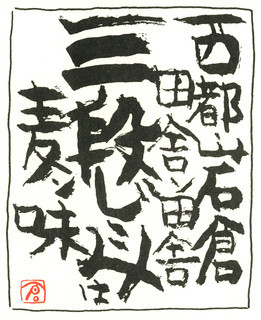 西都岩倉
田舎田舎
三段じこみは
麦味